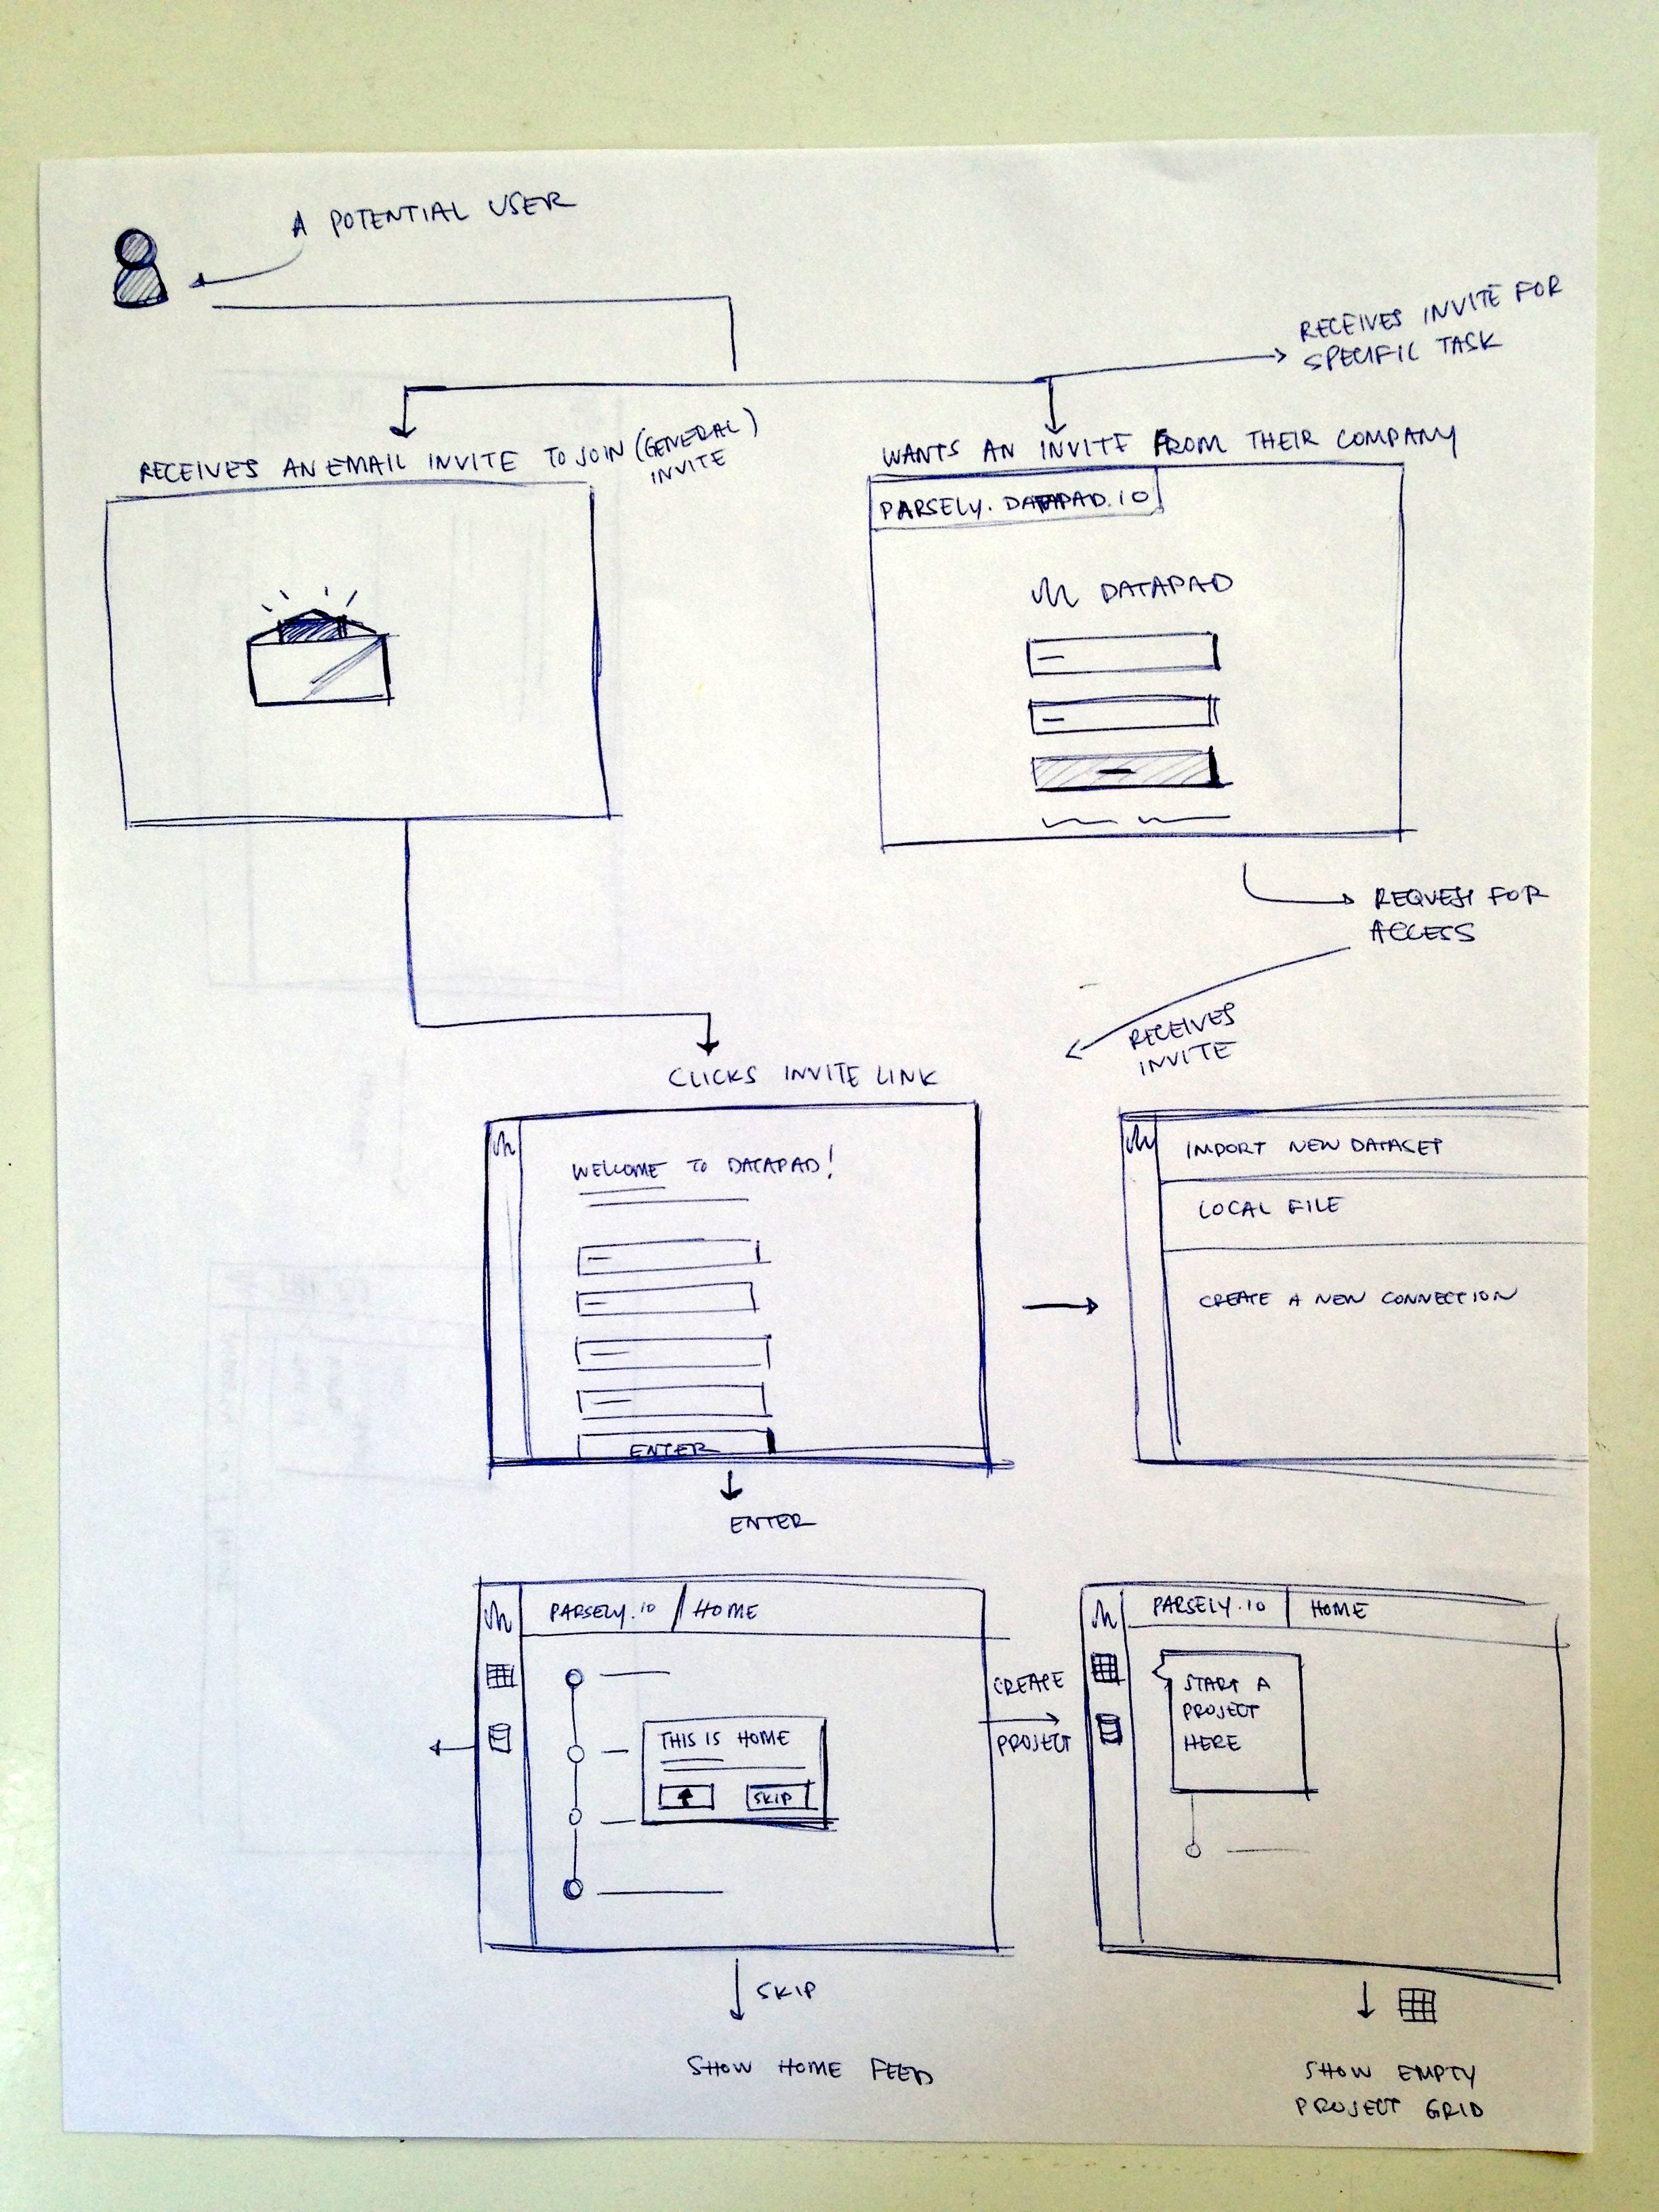 A POTENTIAL USER
RECEIVES INVITE FOR
SPECIFIC TASK
RECEIVES AN EMAIL INVITE TO JOIN (GENERAL)
INVITE
WANTS AN INVITE FROM THEIR COMPANY
PARSELY.DATAPAD.IO
DATAPAD
REQUEST FOR
ACCESS
RECEIVES
INVITE
CLICKS INVITE LINK
WELCOME TO DATAPAD!
ENTER
ENTER
IMPORT NEW DATASET
LOCAL FILE
CREATE A NEW CONNECTION
PARSELY.IO / HOME
THIS IS HOME
SKIP
CREATE
PROJECT
PARSELY.IO | HOME
START A
PROJECT
HERE
SKIP
SHOW HOME FEED
SHOW EMPTY
PROJECT GRID